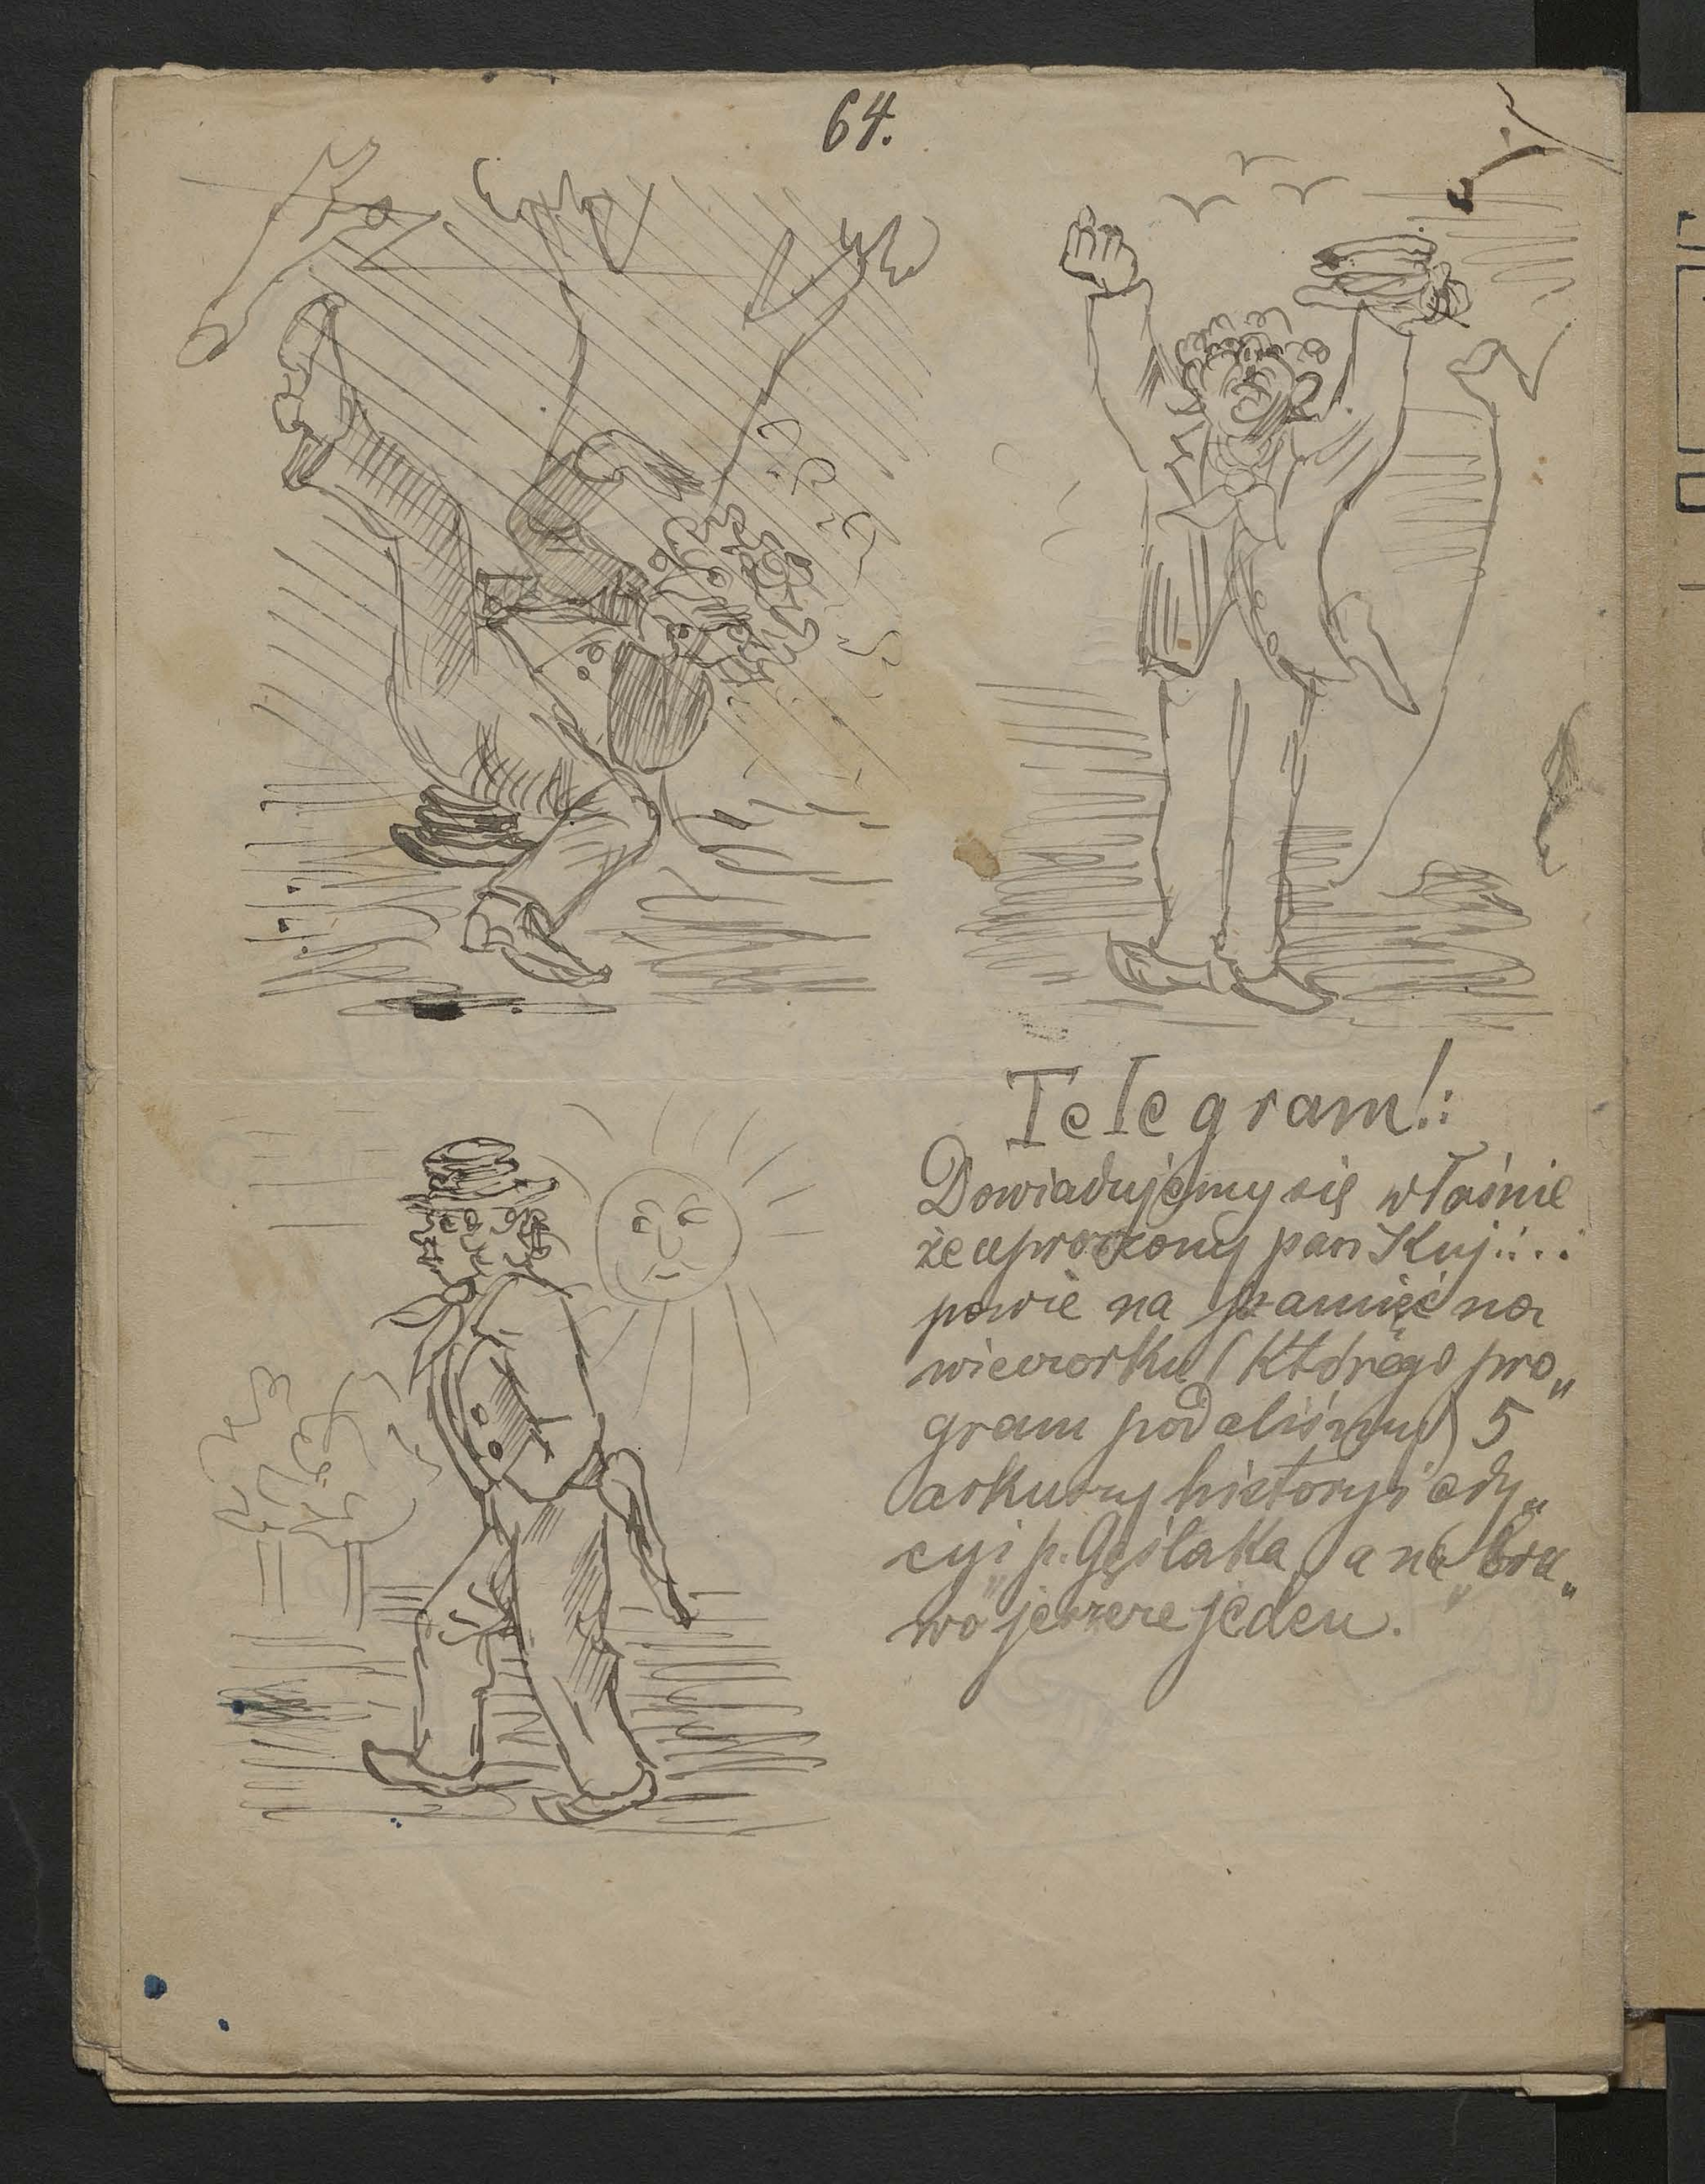 64.
Telegram!:
Dowiadujemy się właśnie
że uproszony pan Kuj....
powie na pamięć na
wieczorku (którego pro„
gram podaliśmy) 5
arkuszy historyi edy„
cyi p. Gęślaka, a na „bra„
wo" jeszcze jeden.